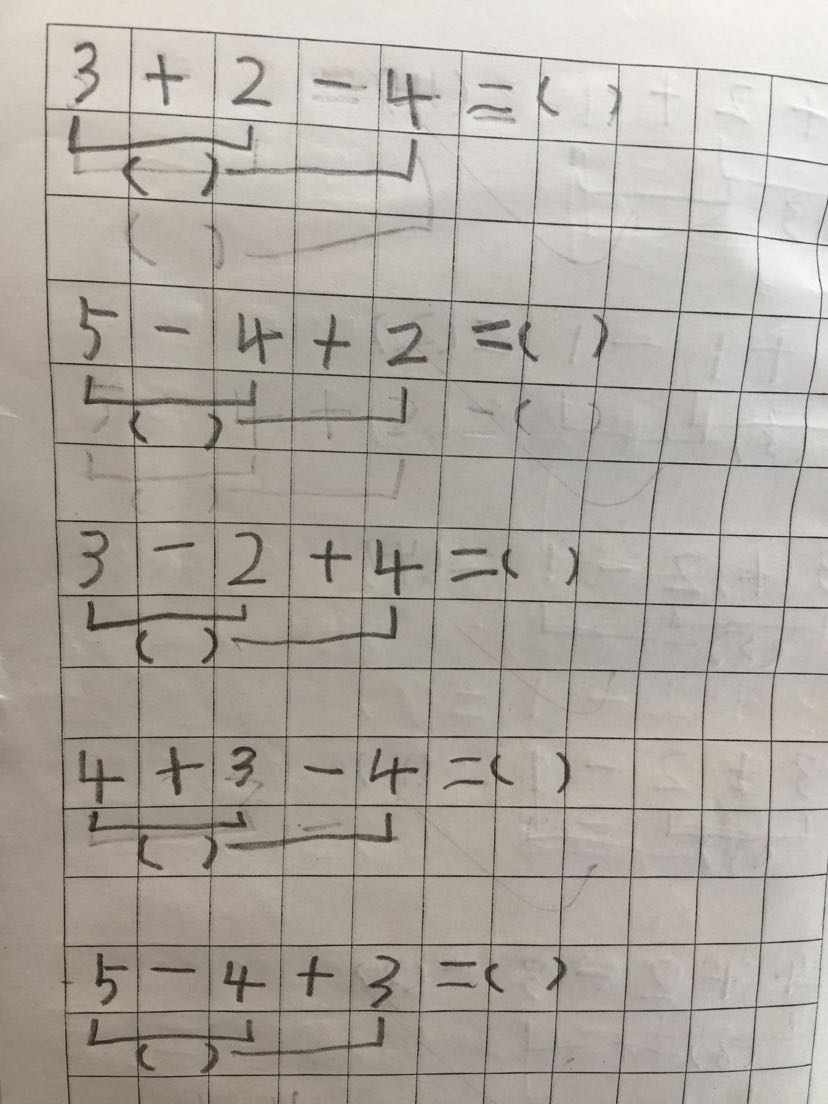 3 + 2 - 4 = ( )
( )
5 - 4 + 2 = ( )
( )
3 - 2 + 4 = ( )
( )
4 + 3 - 4 = ( )
( )
5 - 4 + 3 = ( )
( )